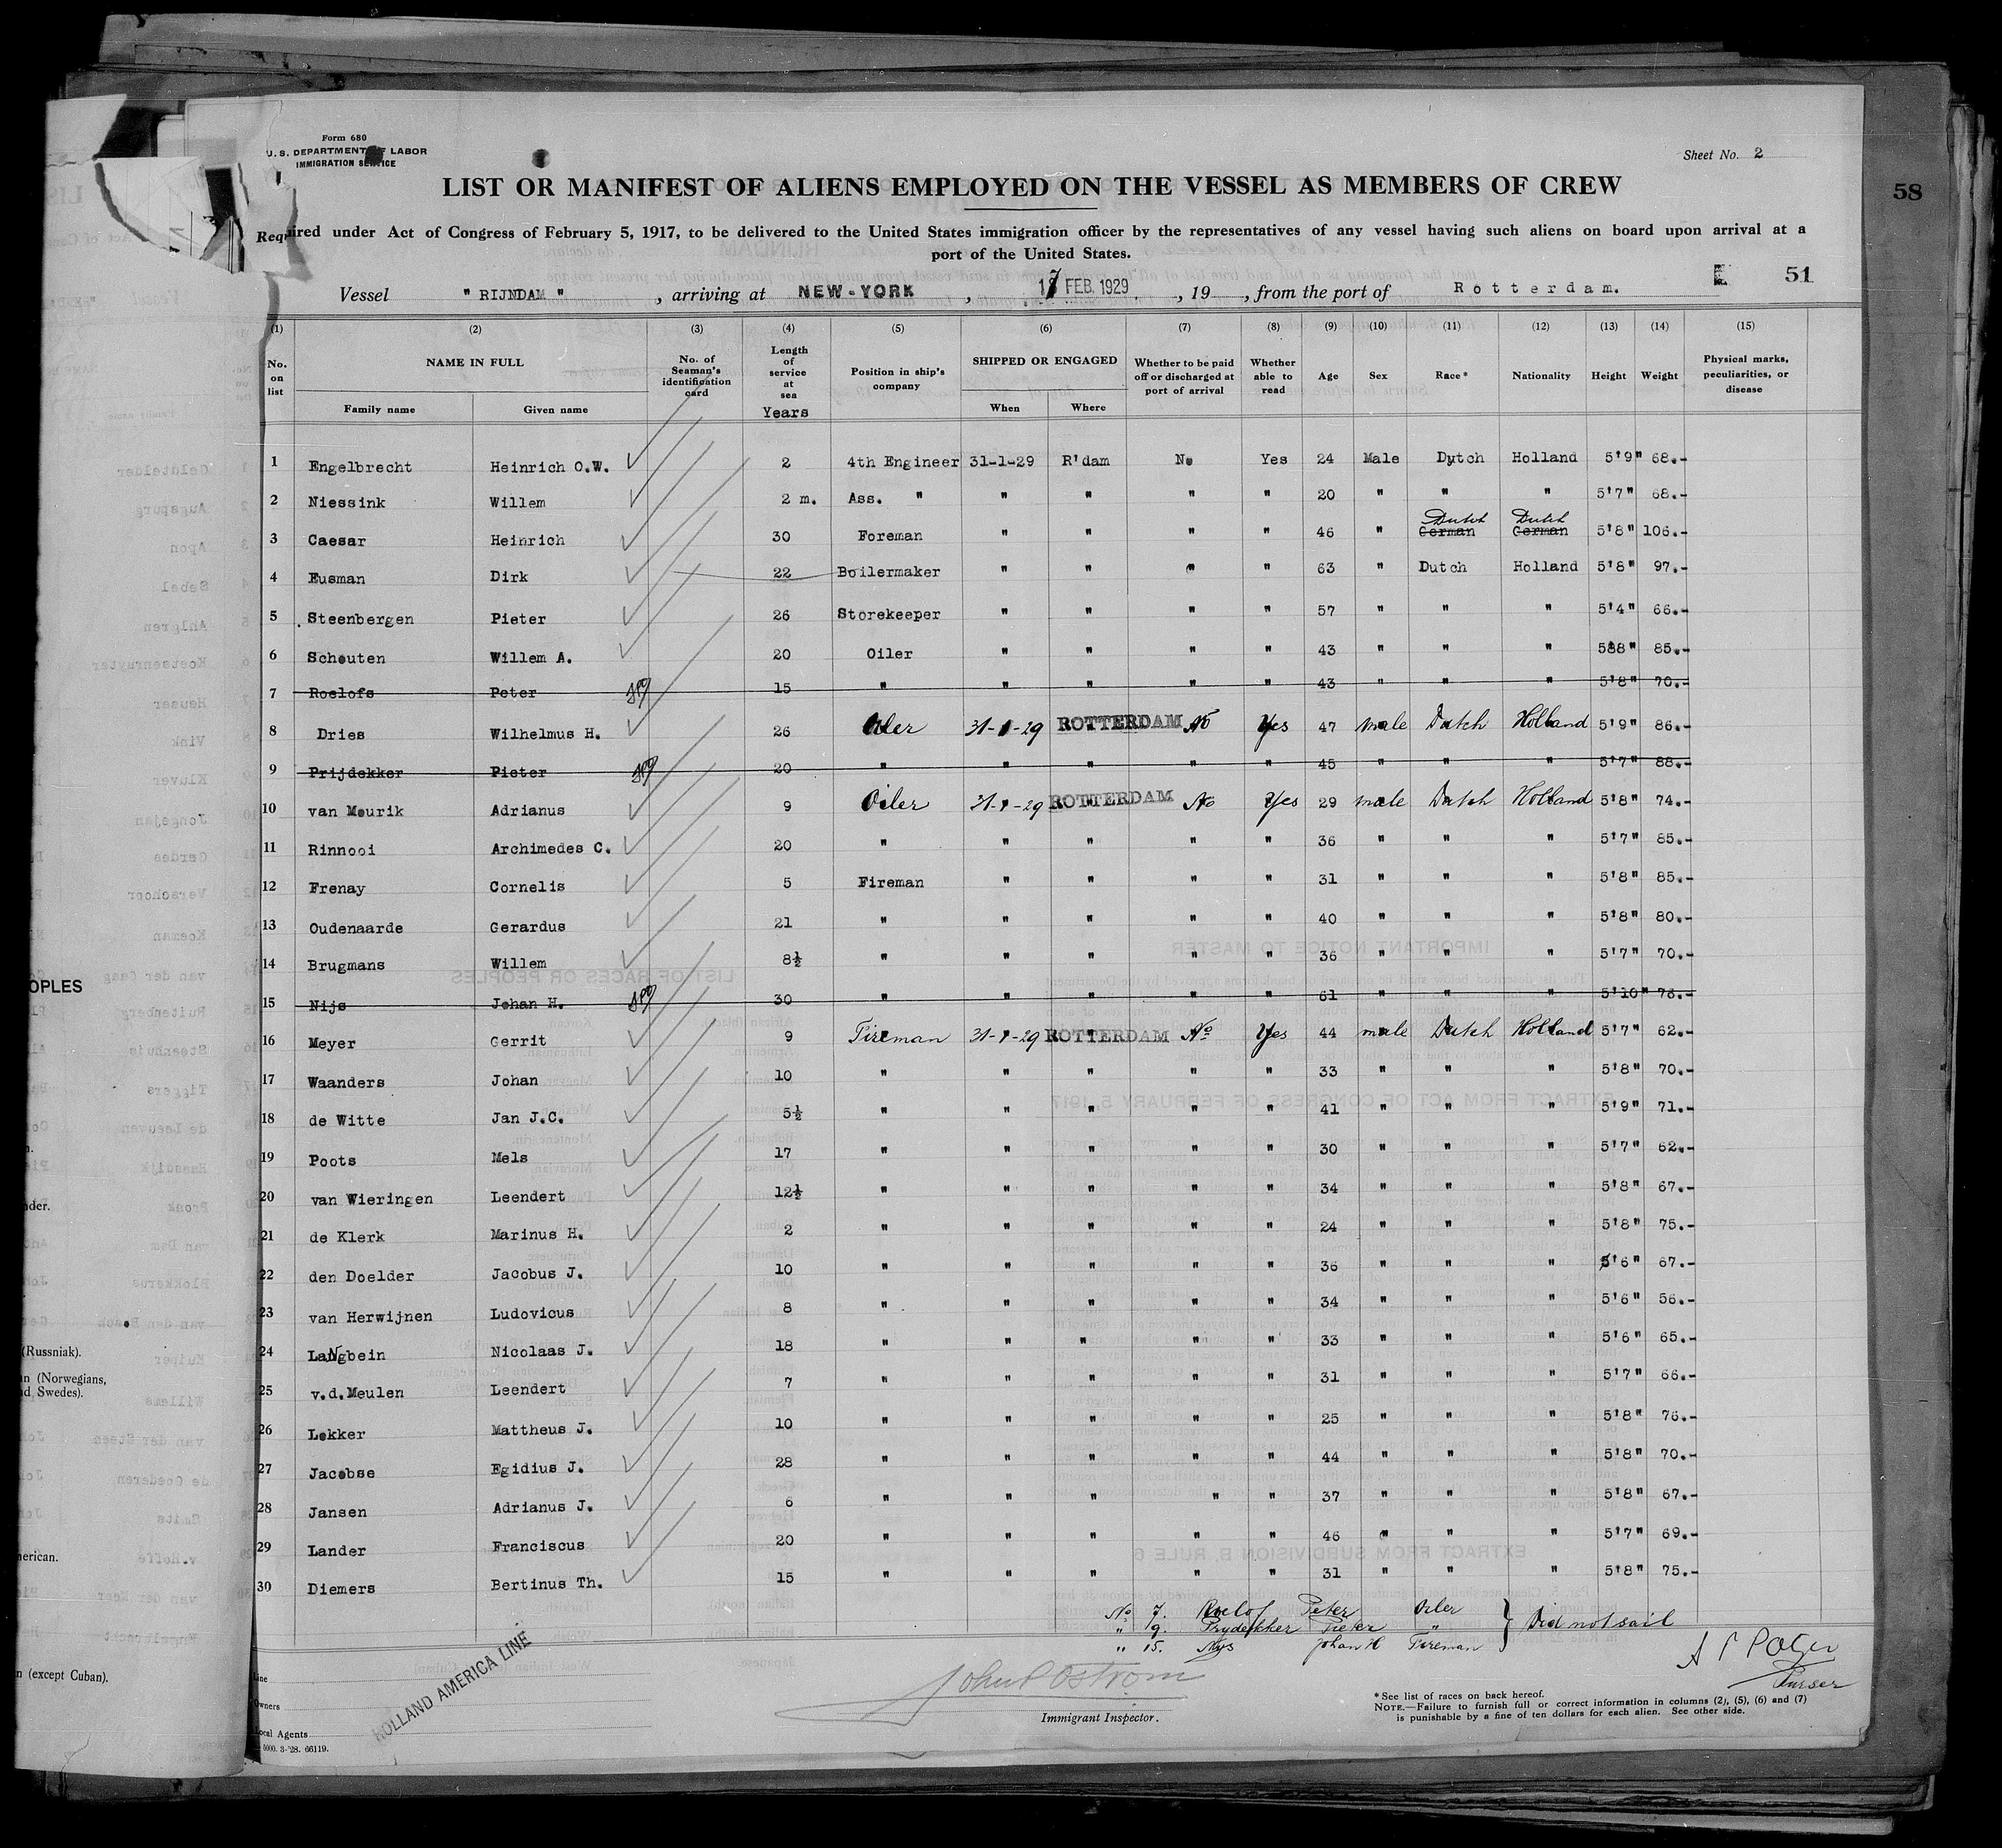 Form 680
U. S. DEPARTMENT OF LABOR
IMMIGRATION SERVICE
Sheet No. 2
LIST OR MANIFEST OF ALIENS EMPLOYED ON THE VESSEL AS MEMBERS OF CREW
58
Required under Act of Congress of February 5, 1917, to be delivered to the United States immigration officer by the representatives of any vessel having such aliens on board upon arrival at a
port of the United States.
51
Vessel " RIJNDAM " , arriving at NEW-YORK , 17 FEB. 1929 , 19 , from the port of Rotterdam.
(1) (2) (3) (4) (5) (6) (7) (8) (9) (10) (11) (12) (13) (14) (15)
No. on list NAME IN FULL Family name Given name No. of Seaman's identification card Length of service at sea Years Position in ship's company SHIPPED OR ENGAGED When Where Whether to be paid off or discharged at port of arrival Whether able to read Age Sex Race* Nationality Height Weight Physical marks, peculiarities, or disease
1 Engelbrecht Heinrich O.W. 2 4th Engineer 31-1-29 R'dam No Yes 24 Male Dutch Holland 5'9" 68.-
2 Niessink Willem 2 m. Ass. " " " " " 20 " " " 5'7" 68.-
3 Caesar Heinrich 30 Foreman " " " " 46 " Dutch German Dutch German 5'8" 106.-
4 Eusman Dirk 22 Boilermaker " " " " 63 " Dutch Holland 5'8" 97.-
5 Steenbergen Pieter 26 Storekeeper " " " " 57 " " " 5'4" 66.-
6 Schouten Willem A. 20 Oiler " " " " 43 " " " 5'8" 85.-
7 Roelofs Peter 15 " " " " " 43 " " " 5'8" 70.-
8 Dries Wilhelmus H. 26 Oiler 31-1-29 ROTTERDAM No Yes 47 male Dutch Holland 5'9" 86.-
9 Prijdekker Pieter 20 " " " " " 45 " " " 5'7" 88.-
10 van Mourik Adrianus 9 Oiler 31-1-29 ROTTERDAM No Yes 29 male Dutch Holland 5'8" 74.-
11 Rinnooi Archimedes C. 20 " " " " " 36 " " " 5'7" 85.-
12 Frenay Cornelis 5 Fireman " " " " 31 " " " 5'8" 85.-
13 Oudenaarde Gerardus 21 " " " " " 40 " " " 5'8" 80.-
14 Brugmans Willem 8½ " " " " " 36 " " " 5'7" 70.-
15 Nijs Johan H. 30 " " " " " 61 " " " 5'10" 76.-
16 Meyer Gerrit 9 Fireman 31-1-29 ROTTERDAM No Yes 44 male Dutch Holland 5'7" 62.-
17 Waanders Johan 10 " " " " " 33 " " " 5'8" 70.-
18 de Witte Jan J.C. 5½ " " " " " 41 " " " 5'9" 71.-
19 Poots Mels 17 " " " " " 30 " " " 5'7" 62.-
20 van Wieringen Leendert 12½ " " " " " 34 " " " 5'8" 67.-
21 de Klerk Marinus H. 2 " " " " " 24 " " " 5'8" 75.-
22 den Doelder Jacobus J. 10 " " " " " 36 " " " 5'6" 67.-
23 van Herwijnen Ludovicus 8 " " " " " 34 " " " 5'6" 56.-
24 LaNgbein Nicolaas J. 18 " " " " " 33 " " " 5'6" 65.-
25 v.d.Meulen Leendert 7 " " " " " 31 " " " 5'7" 66.-
26 Lekker Mattheus J. 10 " " " " " 25 " " " 5'8" 76.-
27 Jacobse Egidius J. 28 " " " " " 44 " " " 5'8" 70.-
28 Jansen Adrianus J. 6 " " " " " 37 " " " 5'8" 67.-
29 Lander Franciscus 20 " " " " " 46 " " " 5'7" 69.-
30 Diemers Bertinus Th. 15 " " " " " 31 " " " 5'8" 75.-
No 7. Roelof Peter Oiler
" 9. Prydekker Pieter " } Did not sail
" 15. Nys Johan H Fireman
Purser
Line
Owners
Local Agents
HOLLAND AMERICA LINE
John P Ostrom
Immigrant Inspector.
*See list of races on back hereof.
NOTE.—Failure to furnish full or correct information in columns (2), (5), (6) and (7)
is punishable by a fine of ten dollars for each alien. See other side.
6000. 3-'28. 66119.
OPLES
nder.
(Russniak).
n (Norwegians,
d, Swedes).
nerican.
n (except Cuban).